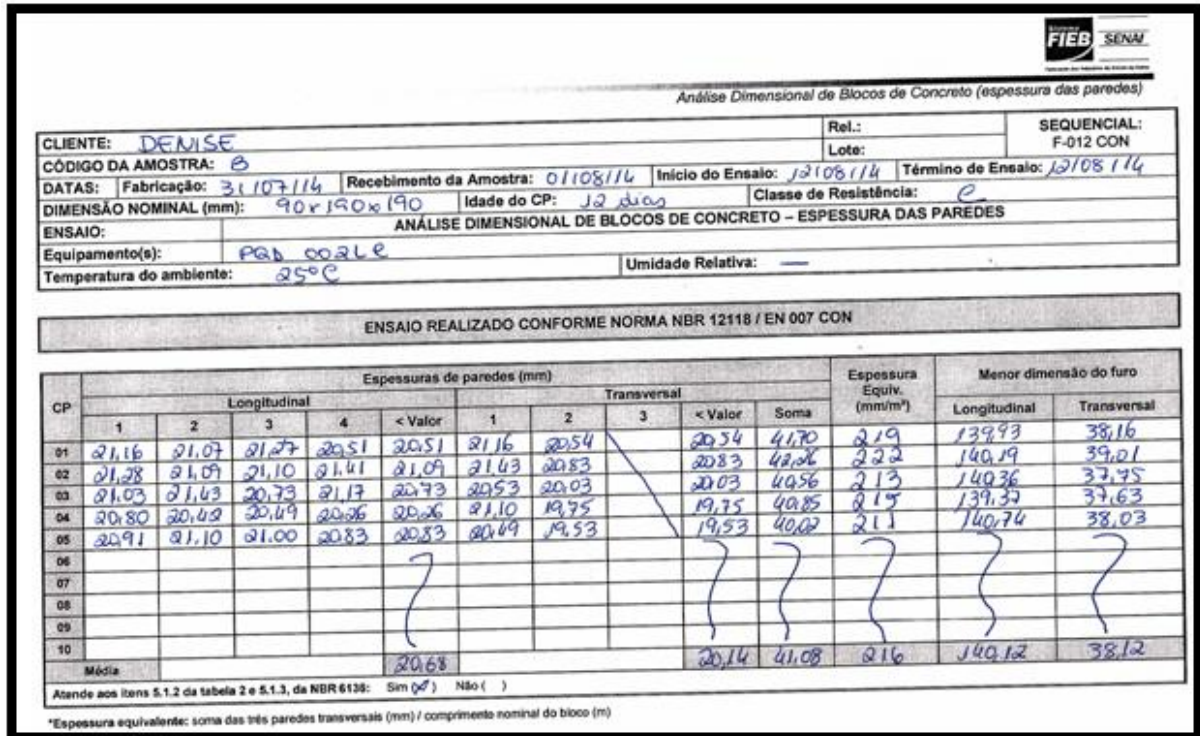 FIEB SENAI
Análise Dimensional de Blocos de Concreto (espessura das paredes)
CLIENTE: DENISE Rel.: SEQUENCIAL:
Lote: F-012 CON
CÓDIGO DA AMOSTRA: B
DATAS: Fabricação: 31/07/14 Recebimento da Amostra: 01/08/14 Início do Ensaio: 12/08/14 Término de Ensaio: 12/08/14
DIMENSÃO NOMINAL (mm): 90x190x190 Idade do CP: 12 dias Classe de Resistência: C
ENSAIO: ANÁLISE DIMENSIONAL DE BLOCOS DE CONCRETO – ESPESSURA DAS PAREDES
Equipamento(s): PQD 002LC
Temperatura do ambiente: 25°C Umidade Relativa: —
ENSAIO REALIZADO CONFORME NORMA NBR 12118 / EN 007 CON
CP Espessuras de paredes (mm) Espessura Equiv. (mm/m²) Menor dimensão do furo
Longitudinal Transversal Longitudinal Transversal
1 2 3 4 < Valor 1 2 3 < Valor Soma
01 21,16 21,07 21,27 20,51 20,51 21,16 20,54 20,54 41,70 219 139,93 38,16
02 21,28 21,09 21,10 21,41 21,09 21,43 20,83 20,83 42,26 222 140,19 39,01
03 21,03 21,43 20,73 21,17 20,73 20,53 20,03 20,03 40,56 213 140,36 37,75
04 20,80 20,42 20,49 20,26 20,26 21,10 19,75 19,75 40,85 215 139,37 37,63
05 20,91 21,10 21,00 20,83 20,83 20,49 19,53 19,53 40,02 211 140,74 38,03
06
07
08
09
10
Média 20,68 20,14 41,08 216 140,12 38,12
Atende aos itens 5.1.2 da tabela 2 e 5.1.3, da NBR 6136: Sim (X) Não ( )
*Espessura equivalente: soma das três paredes transversais (mm) / comprimento nominal do bloco (m)